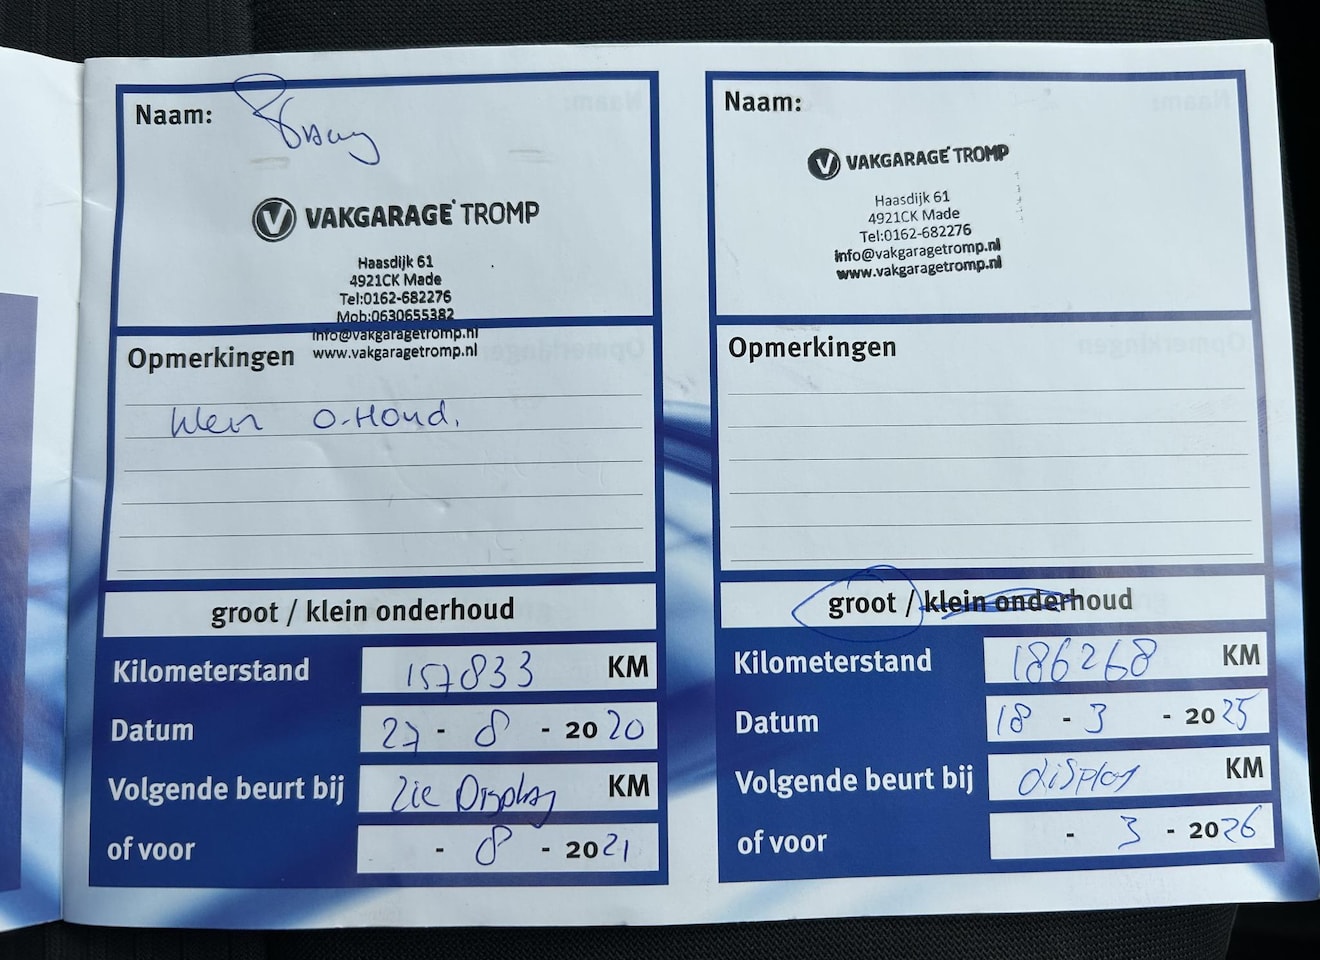 Naam:
VAKGARAGE TROMP
Haasdijk 61
4921CK Made
Tel:0162-682276
Mob:0630655382
info@vakgaragetromp.nl
www.vakgaragetromp.nl
Opmerkingen
klein O-Houd.
groot / klein onderhoud
Kilometerstand 157833 KM
Datum 27 - 8 - 2020
Volgende beurt bij Zie Display KM
of voor - 8 - 2021
Naam:
VAKGARAGE TROMP
Haasdijk 61
4921CK Made
Tel:0162-682276
info@vakgaragetromp.nl
www.vakgaragetromp.nl
Opmerkingen
groot / klein onderhoud
Kilometerstand 186268 KM
Datum 18 - 3 - 2025
Volgende beurt bij display KM
of voor - 3 - 2026